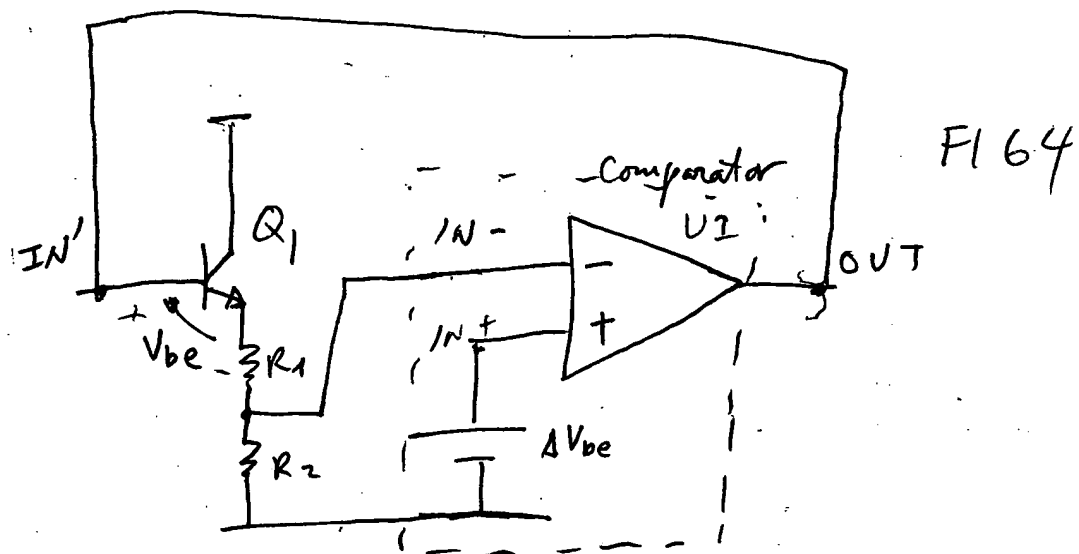 FI 64
Comparator
U1
IN'
Q1
IN -
-
OUT
+
Vbe
-
R1
IN +
+
R2
ΔVbe